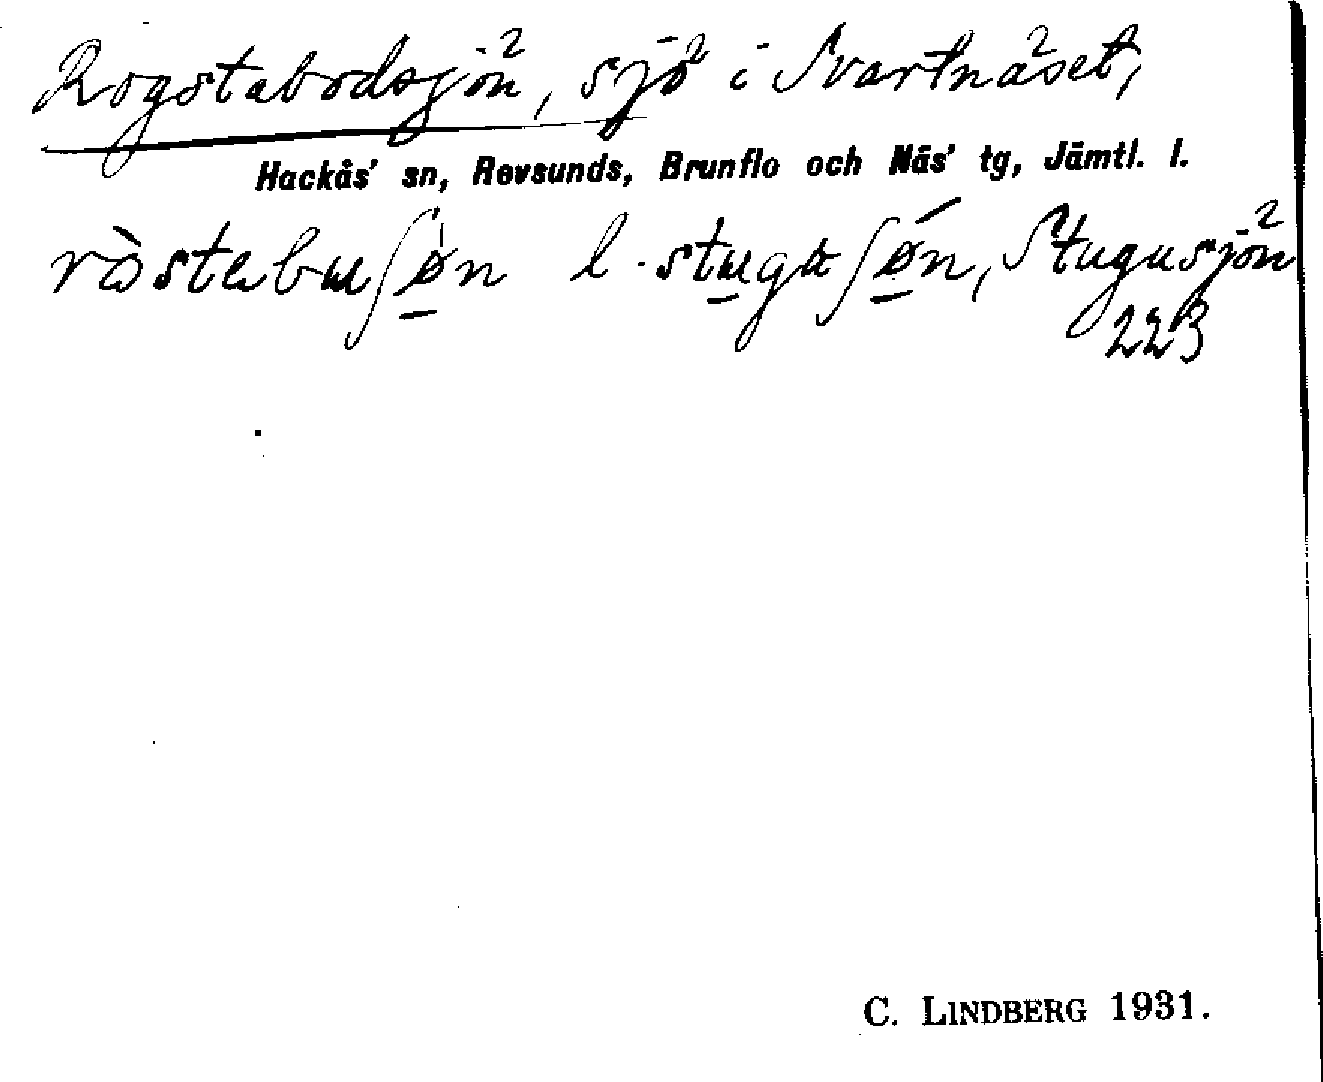 Rogstabodsjön², sjö² i Svartnäset,²
Hackås' sn, Revsunds, Brunflo och Näs' tg, Jämtl. l.
ròstabuʃøn l. stugʉʃøn, Stugusjön²
223
C. LINDBERG 1931.